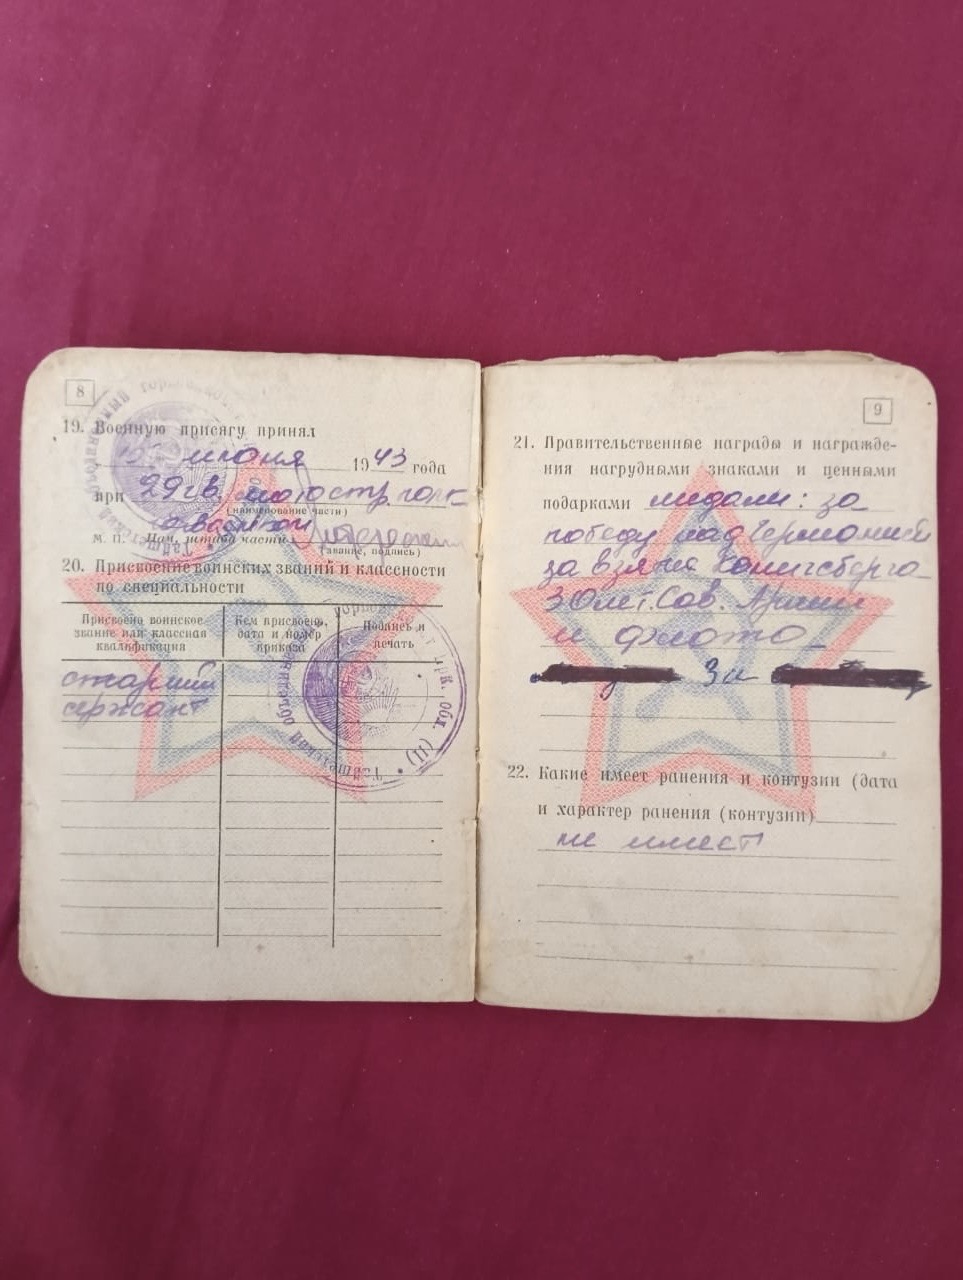 8
19. Военную присягу принял
15 июня 1943 года
при 29 гв. мотостр. полк
(наименование части)
М. П. Нач. штаба части
(звание, подпись)
20. Присвоение воинских званий и классности
по специальности
Присвоено воинское
звание или классная
квалификация
Кем присвоено,
дата и номер
приказа
Подпись и
печать
старший
сержант
Тайшетский объединенный горвоенкомат Ирк. обл. (II)
9
21. Правительственные награды и награжде-
ния нагрудными знаками и ценными
подарками медали: за
победу над Германией
за взятие Кенигсберга
30 лет. Сов. Армии
и флота
За
22. Какие имеет ранения и контузии (дата
и характер ранения (контузии)
не имеет